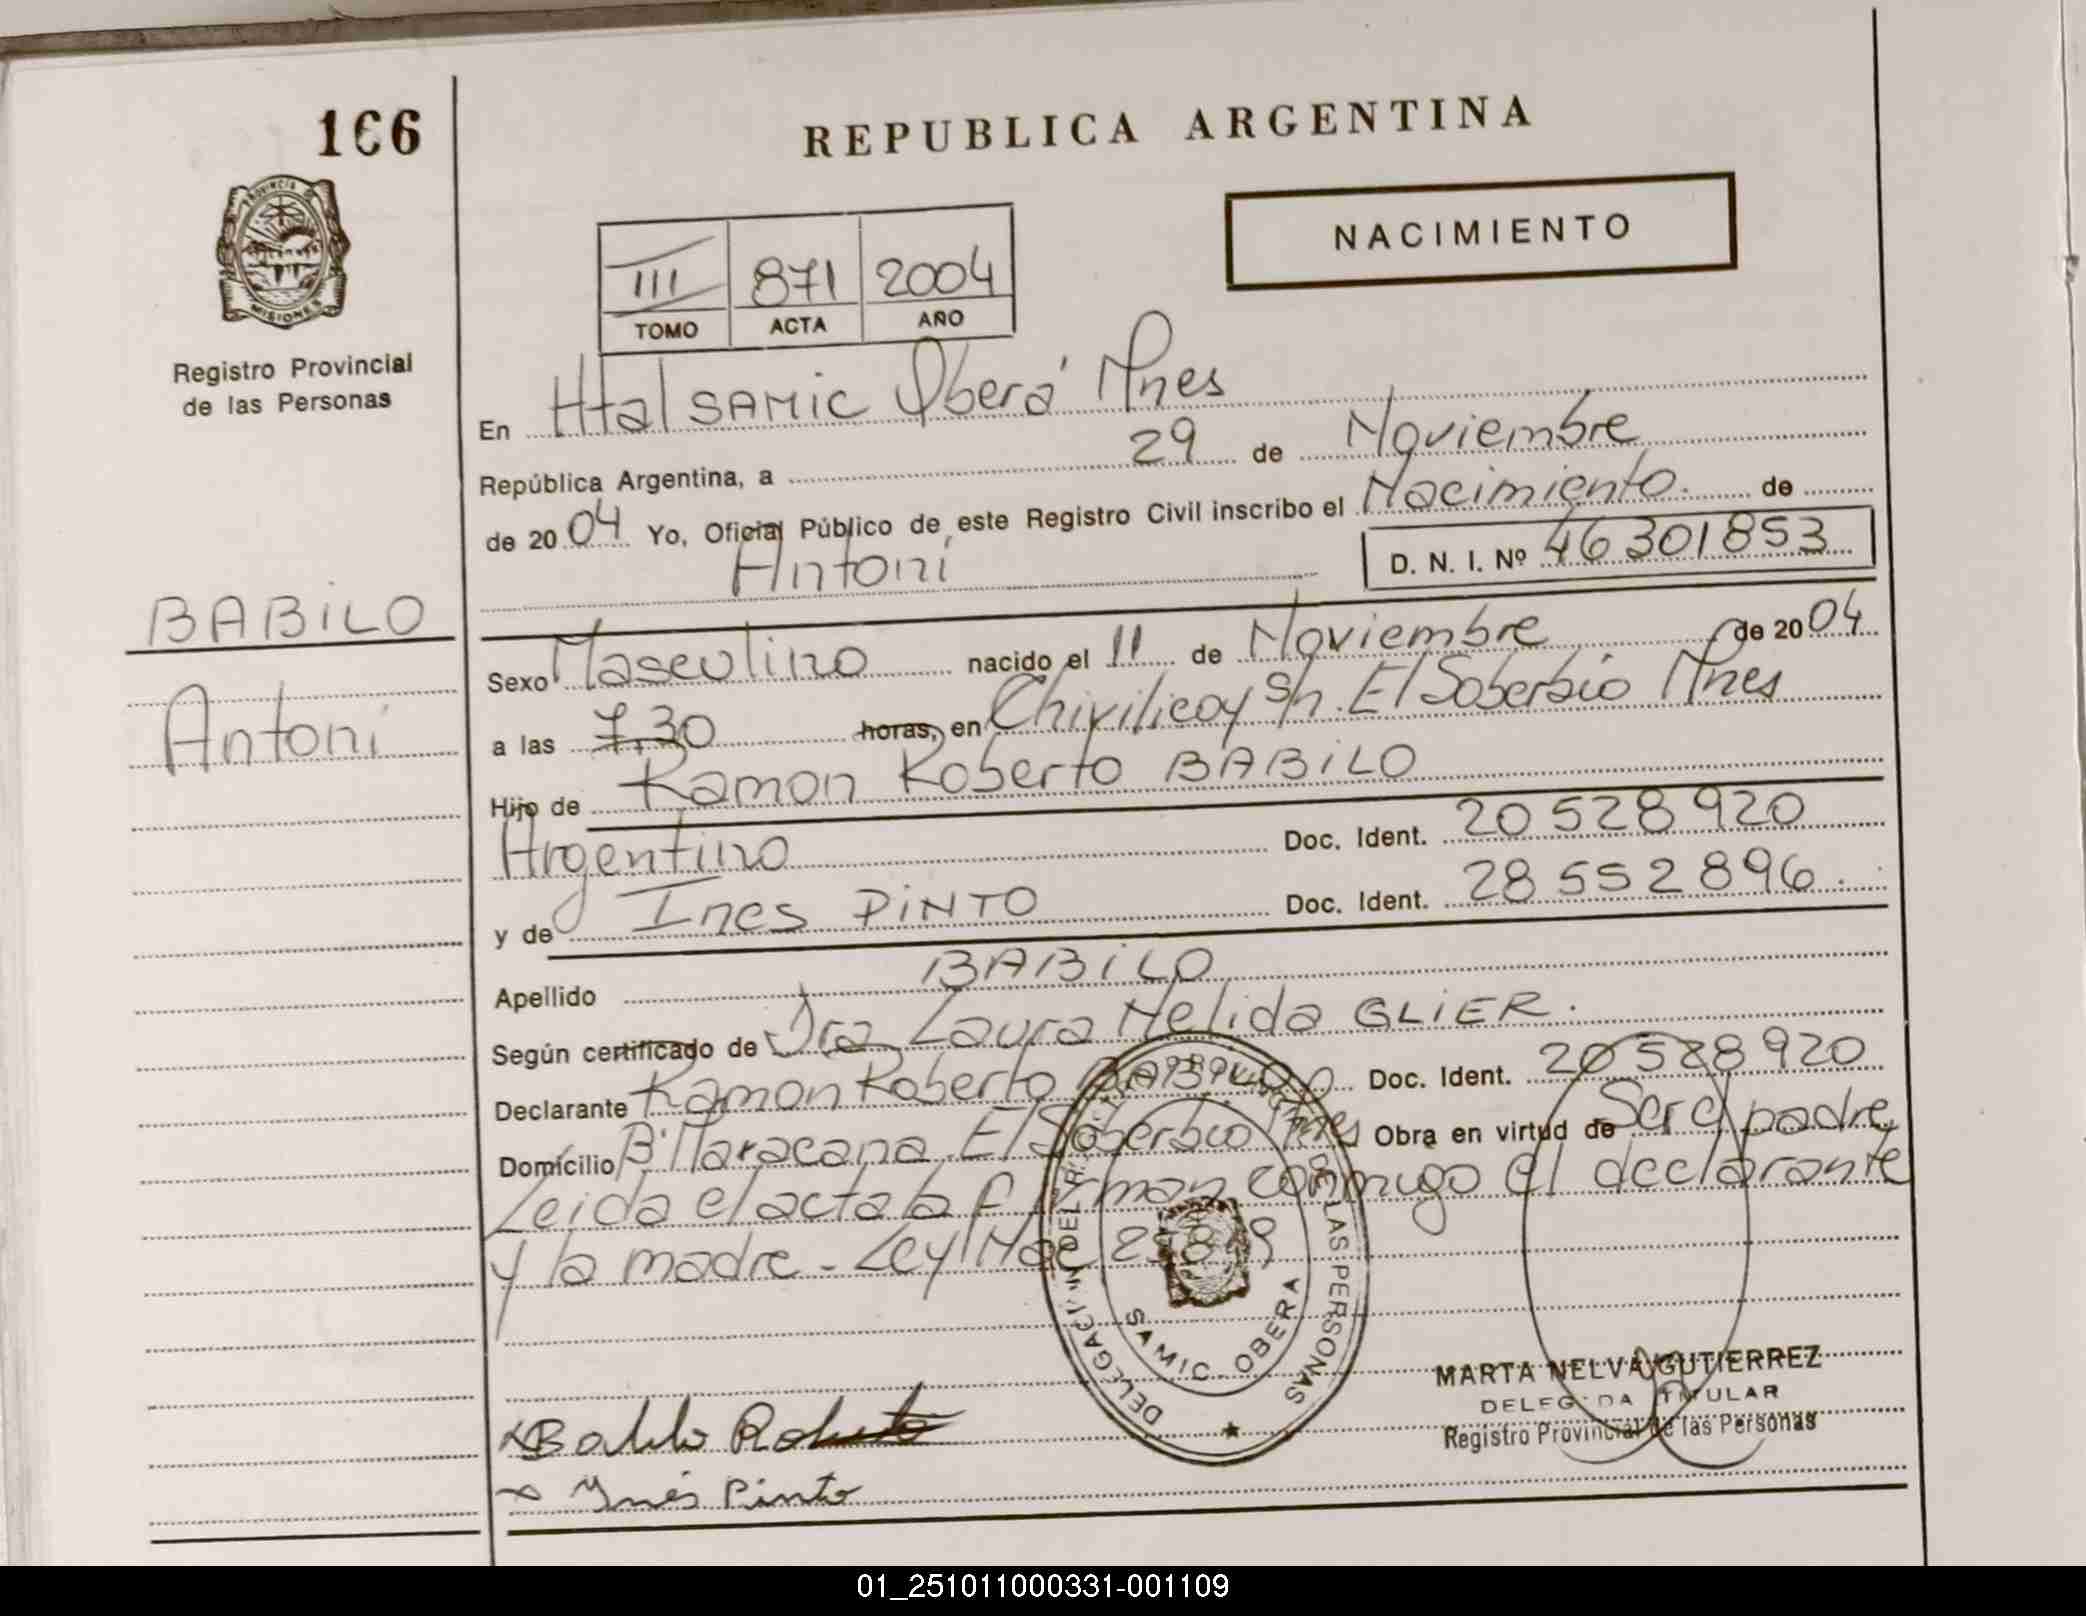 166
REPUBLICA ARGENTINA
PROVINCIA DE
MISIONES
Registro Provincial
de las Personas
NACIMIENTO
III 871 2004
TOMO ACTA AÑO
En Htal SAMIC Oberá Mnes
República Argentina, a 29 de Noviembre
de 2004 Yo, Oficial Público de este Registro Civil inscribo el Nacimiento. de
Antoni
D. N. I. Nº 46301853
BABILO
Antoni
Sexo Masculino nacido el 11 de Noviembre de 2004
a las 7,30 horas, en Chivilicoy S/n. El Soberbio Mnes
Hijo de Ramon Roberto BABILO
Argentino Doc. Ident. 20528920
y de Ines PINTO Doc. Ident. 28552896.
Apellido BABILO
Según certificado de Dra Laura Nelida GLIER.
Declarante Ramon Roberto BABILO Doc. Ident. 20528920
Domicilio Bº Maracana El Soberbio Mnes Obra en virtud de Ser el padre
Leida el acta la firman conmigo el declarante
y la madre - Ley Nac
DE LAS PERSONAS
SAMIC - OBERA
MARTA NELVA GUTIERREZ
DELEGADA TITULAR
Registro Provincial de las Personas
x Babilo Roberto
x Ynés Pinto
01_251011000331-001109